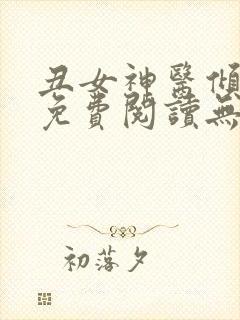 丑女神醫傾
免費閱讀無
初落夕